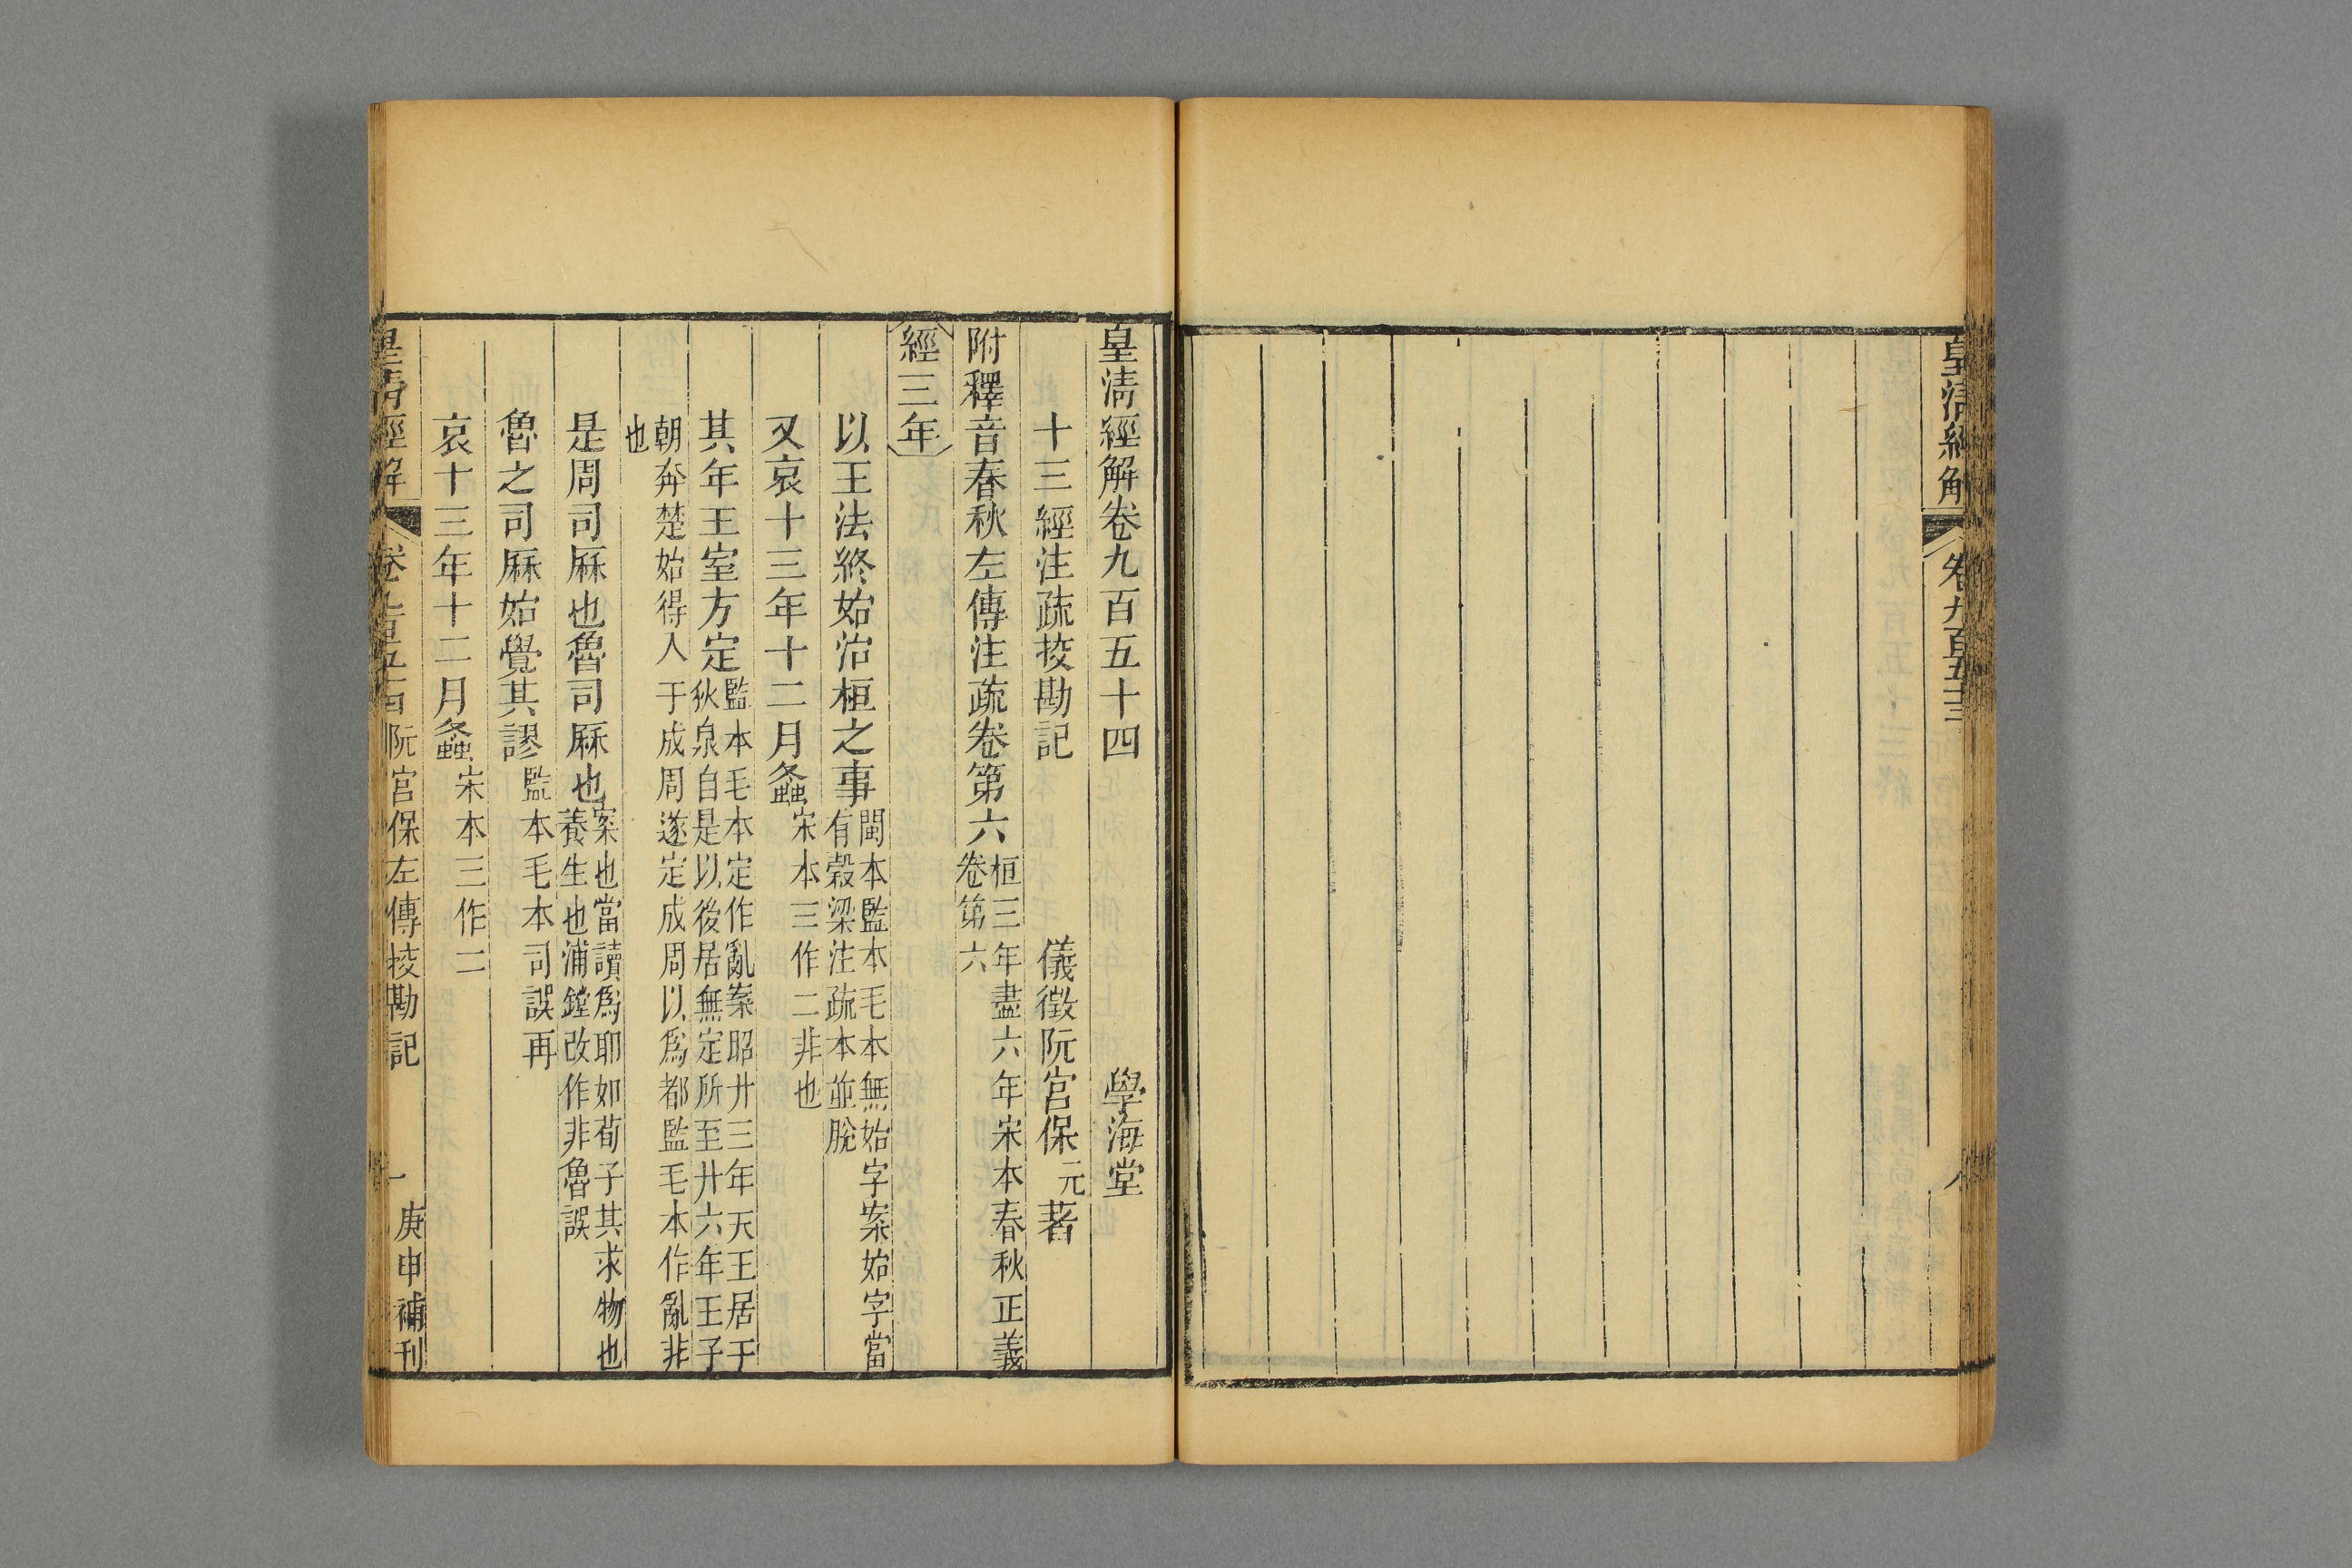 皇清經解
卷九百五十三
八
皇清經解卷九百五十四
學海堂
十三經注疏挍勘記
儀徵阮宮保元著
附釋音春秋左傳注疏卷第六
桓三年盡六年宋本春秋正義
卷第六
經三年
以王法終始治桓之事
閩本監本毛本無始字案始字當
有穀梁注疏本並脫
又哀十三年十二月螽
宋本三作二非也
其年王室方定
監本毛本定作亂案昭廿三年天王居于
狄泉自是以後居無定所至廿六年王子
朝奔楚始得入于成周遂定成周以爲都監毛本作亂非
也
是周司厤也魯司厤也
案也當讀爲耶如荀子其求物也
養生也浦鏜改作非魯誤
魯之司厤始覺其謬
監本毛本司誤再
哀十三年十二月螽
宋本三作二
皇清經解
卷九百五十四
阮宮保左傳挍勘記
一
庚申補刊